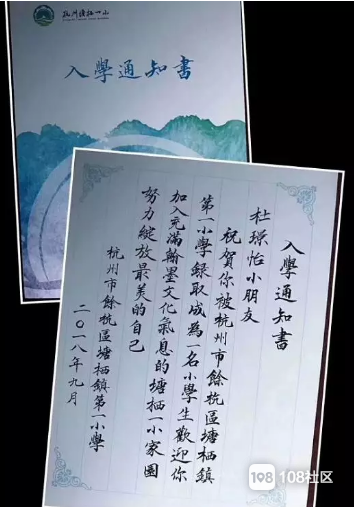 杭州塘栖一小
入學通知書
入學通知書
杜璟怡小朋友
祝賀你被杭州市餘杭區塘栖鎮
第一小學錄取成為一名小學生歡迎你
加入充滿翰墨文化氣息的塘栖一小家園
努力綻放最美的自己
杭州市餘杭區塘栖鎮第一小學
二〇一八年九月
108社区